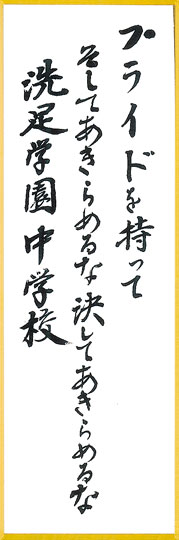 プライドを持って
そしてあきらめるな決してあきらめるな
洗足学園中学校